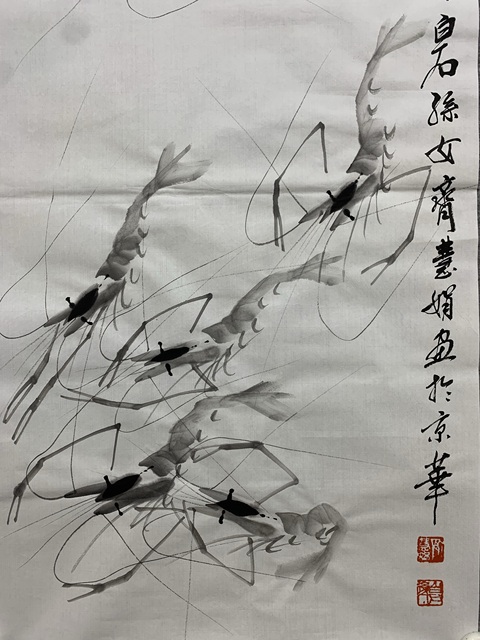 白石孫女齊慧娟画於京華